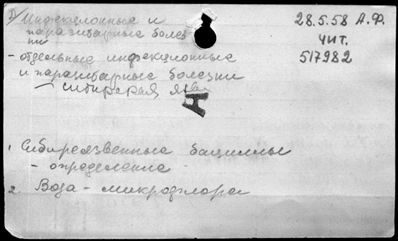 3) Инфекционные и
паразитарные болез
ни
- отдельные инфекционные
и паразитарные болезни
- сибирская язва
28.5.58 А.Ф.
чит.
517982
1. Сибиреязвенные бациллы
- определение
2. Вода - микрофлора